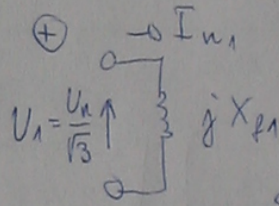 ⊕ → I_{n1}
U_1 = \frac{U_n}{\sqrt{3}} ↑ j X_{f1}